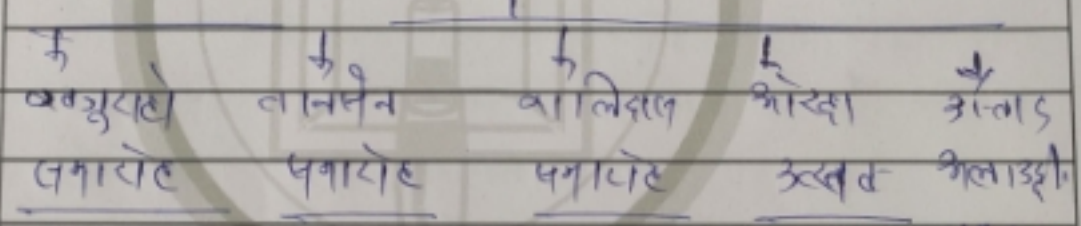 खजुराहो तानसेन कालिदास ओरछा उस्ताद
समारोह समारोह समारोह उत्सव अलाउद्दी.